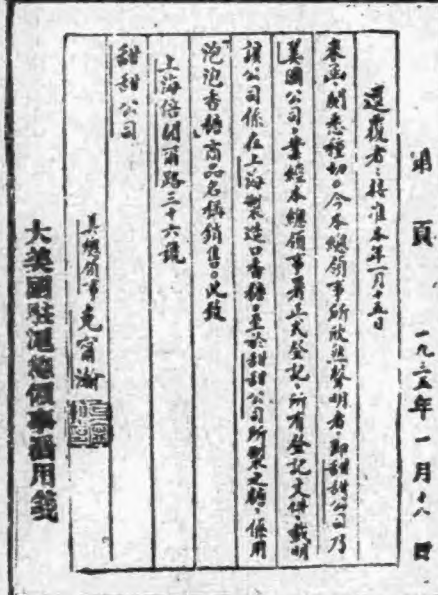 第 頁 一九三五年一月十八日
逕覆者：接准本年一月十五日
來函閱悉種切。今本總領事所欣然聲明者，即甜甜公司乃
美國公司，業經本總領事署正式登記，所有登記文件，載明
該公司係在上海製造口香糖，至於甜甜公司所製之糖，係用
泡泡香糖商品名稱銷售。此致
上海倍開爾路三十六號
甜甜公司
美總領事克甯瀚
大美國駐滬總領事署用箋